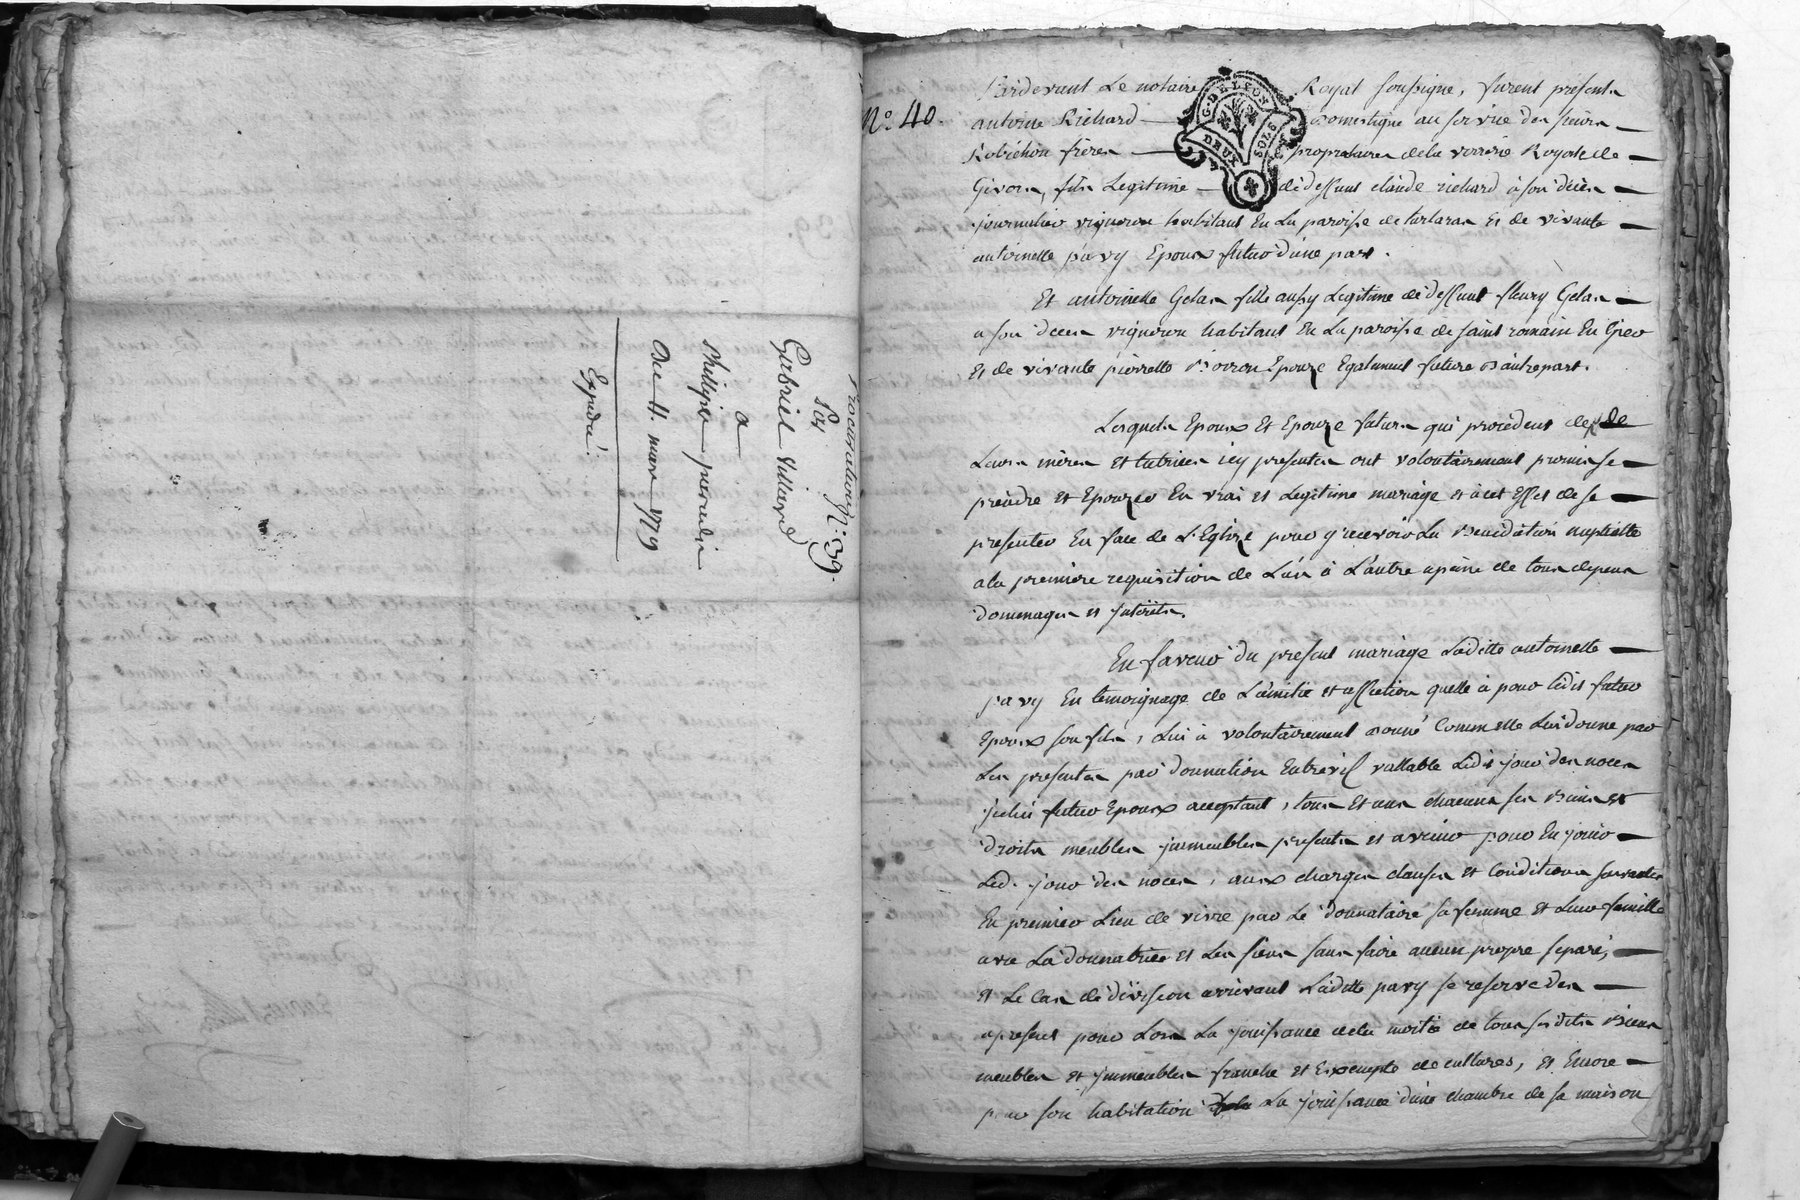 Procuration N.° 39.
Par
Gabriel Villard
a
Phillipe
Du 4. mars 1779
Expedié.
N.° 40.
G. DE LYON
DEUX SOLS
Pardevant Le notaire Royal soussigné, furent présents
antoine Richard domestique au service des sieurs
Robichon frères propriétaires dela verrerie Royale de
Givors, fils Legitime de deffunt claude richard à son décès
journalier vigneron habitant En La paroisse de tartaras Et de vivante
antoinette pavy Epoux futur d'une part.
Et antoinette Gelas fille aussy Legitime de deffunt fleury Gelas
a son décès vigneron habitant En La paroisse de saint romain En Gier
Et de vivante pierrette Boiron Epouze Egalement future d'autre part.
Lesquels Epoux Et Epouze futurs qui procedent de
Leurs mères Et tutrices icy presentes ont volontairement promis se
prendre et Epouzer En vrai et Legitime mariage et à cet Effet de se
presenter En face de L'Eglize pour y recevoir La Benediction nuptialle
a la premiere requisition de L'un à L'autre a peine de tous depens
dommages et interets.
En faveur du present mariage Laditte antoinette
pavy En temoignage de L'amitié et affection quelle à pour Ledit futur
Epoux son fils, Lui à volontairement donné Comme elle Lui donne par
Les presentes par donnation Entrevif vallable Ledit jour des noces
icelui futur Epoux acceptant, tous Et uns chacuns ses Biens et
droits meubles immeubles presents et avenir pour En jouir
Led. jour des noces, aux charges clauses et Conditions suivantes
En premier Lieu de vivre par Le donnataire sa femme et Leur famille
avec La donnatrice et Les siens sans faire aucun propre separé,
et Le Cas de division arrivant Laditte pavy se reserve des
apresent pour Lors La jouissance dela moitié de tous sesdits Biens
meubles et immeubles franche et Exempte de cultures, et Encore
pour son habitation La jouissance d'une chambre de sa maison